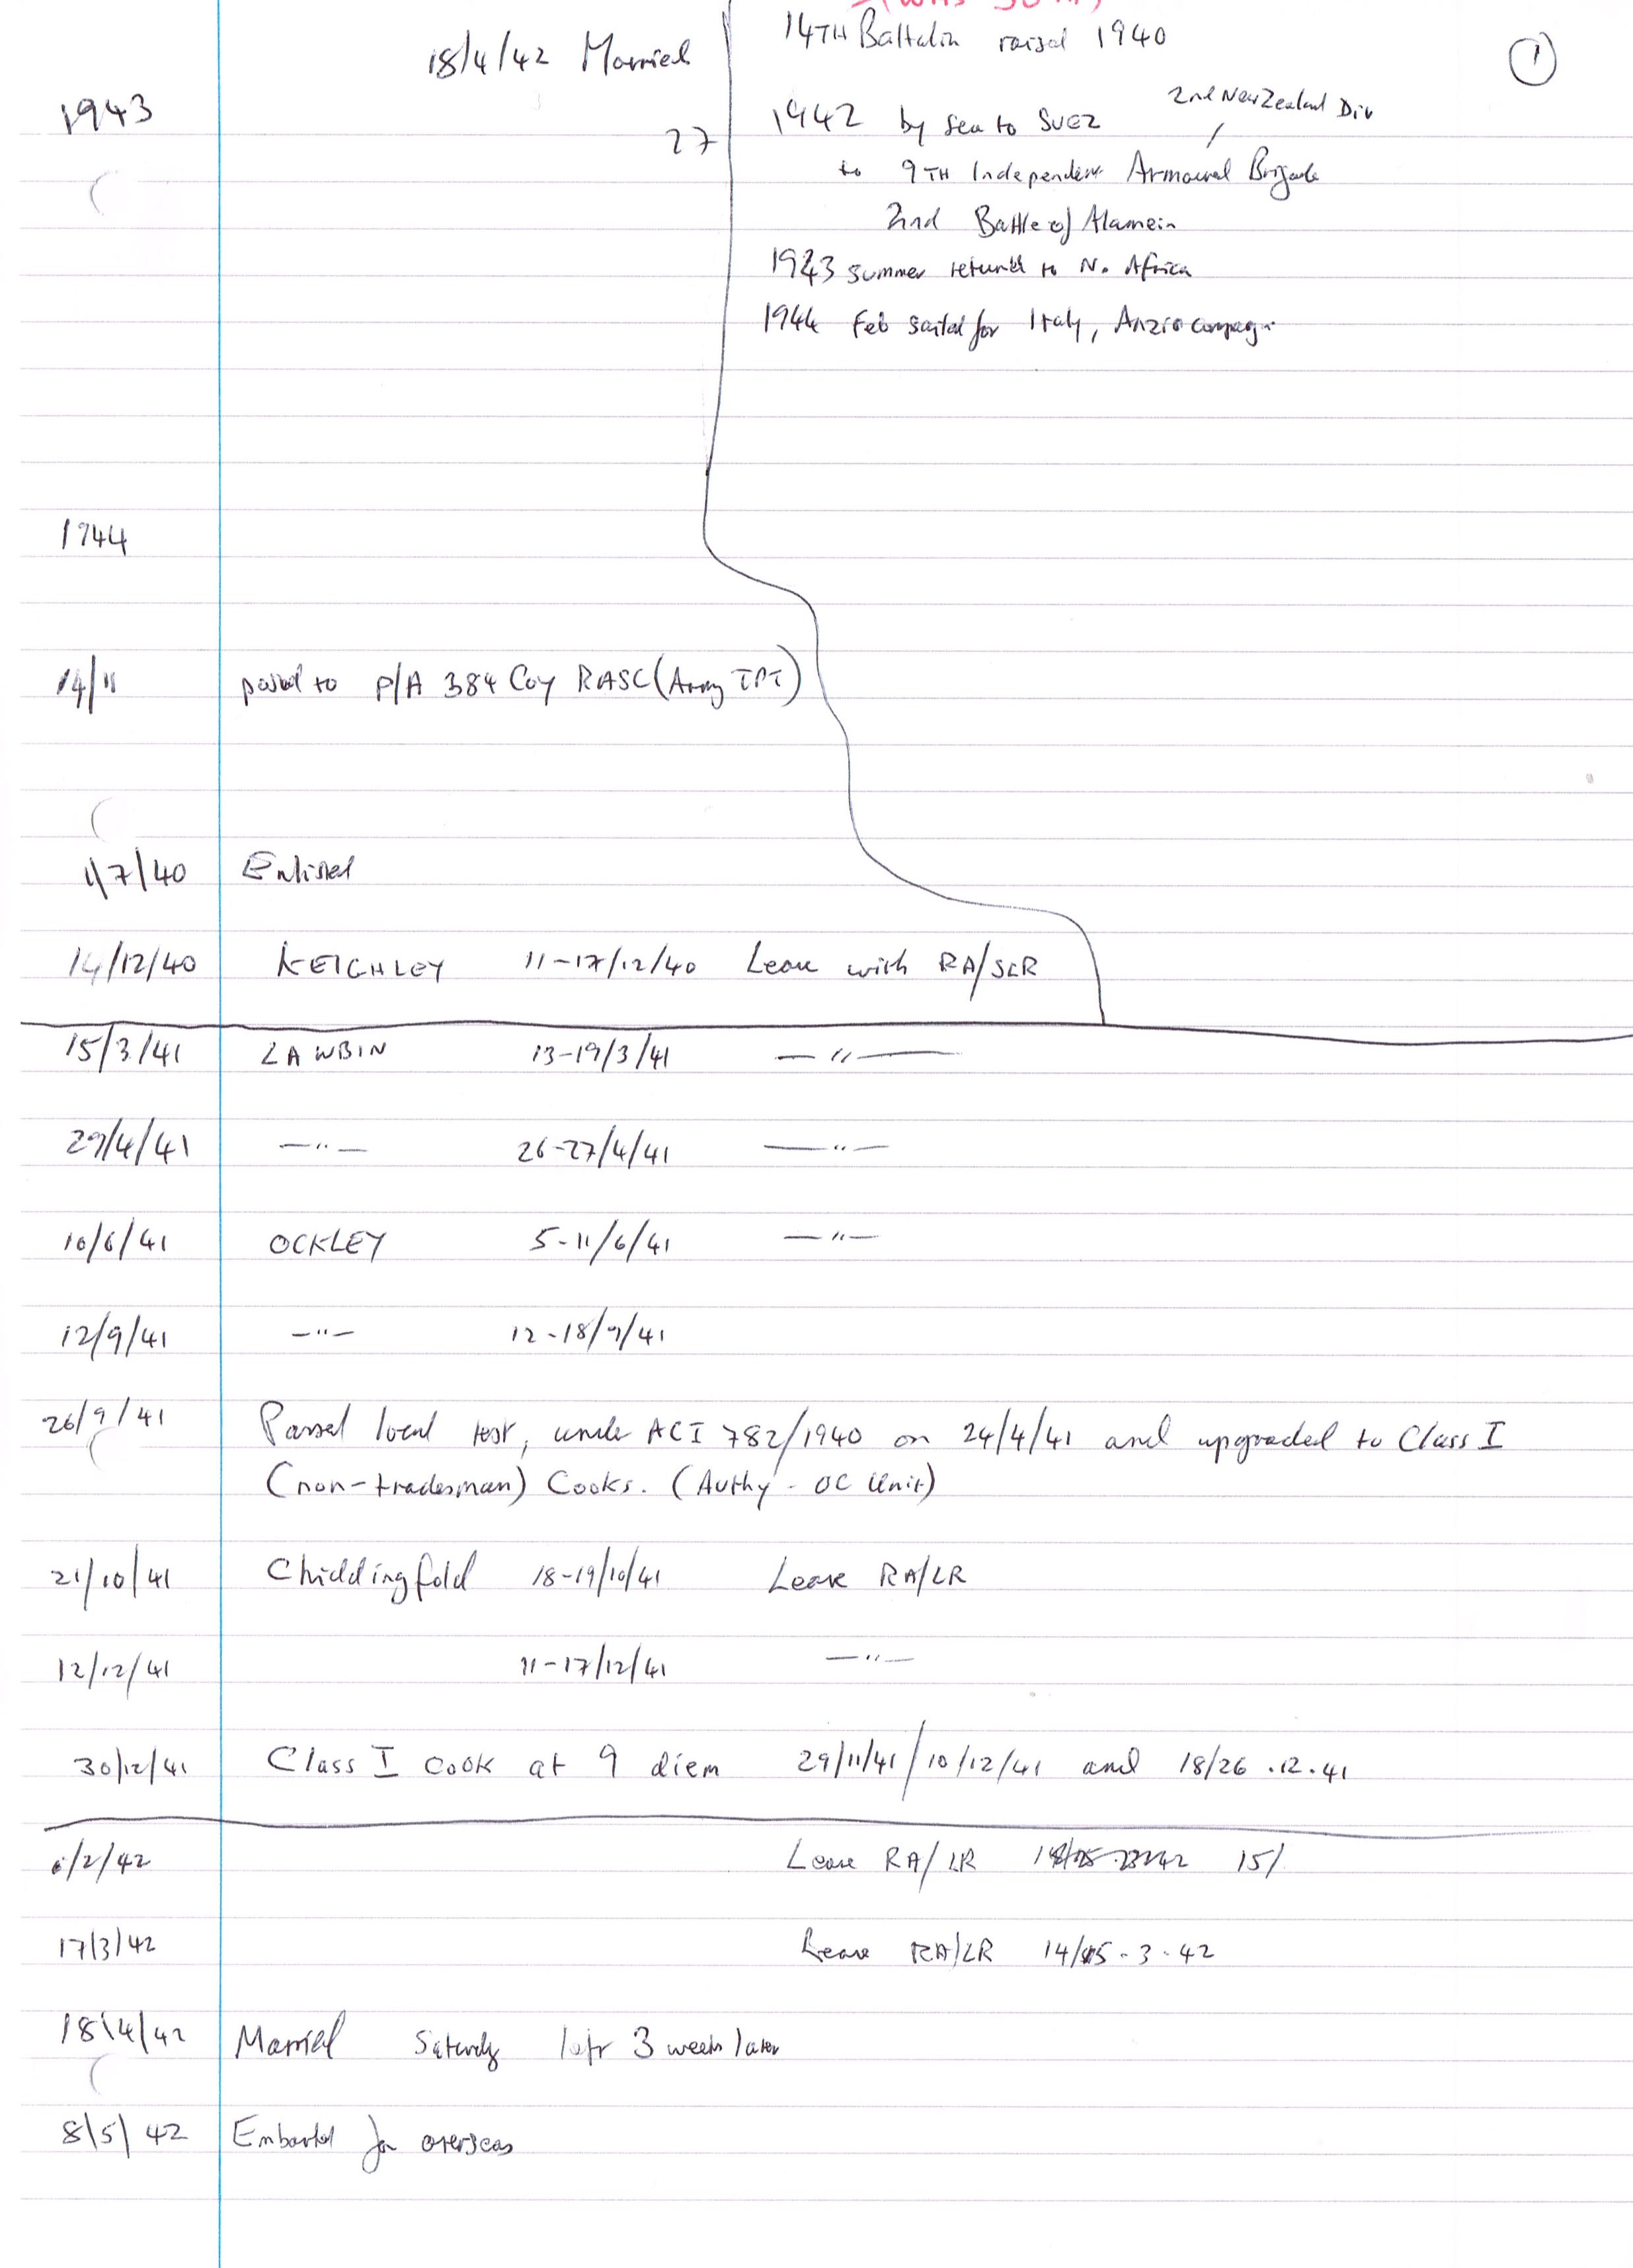 (WAS 30
14TH Battalin raised 1940
18/4/42 Married
①
2nd New Zealand Div
1943
27
1942 by sea to SUEZ
to 9TH Independent Armoured Brigade
2nd Battle of Alamein
1943 summer returned to N. Africa
1944 Feb sailed for Italy, Anzio campagn
1944
14/11 posted to P/A 384 Coy RASC (Army TPT)
1/7/40 Enlisted
14/12/40 KEIGHLEY 11-17/12/40 Leave with RA/SLR
15/3/41 LAWBIN 13-19/3/41 —"—
29/4/41 —"— 26-27/4/41 —"—
10/6/41 OCKLEY 5-11/6/41 —"—
12/9/41 —"— 12-18/9/41
26/9/41 Passed local test, under ACI 782/1940 on 24/4/41 and upgraded to Class I
(non-tradesman) Cooks. (Authy - OC Unit)
21/10/41 Chiddingfold 18-19/10/41 Leave RA/LR
12/12/41 11-17/12/41 —"—
30/12/41 Class I cook at 9 diem 29/11/41/10/12/41 and 18/26.12.41
/2/42 Leave RA/LR 15/
17/3/42 Leave RA/LR 14/15.3.42
18/4/42 Married Saturday left 3 weeks later
8/5/42 Embarked for overseas